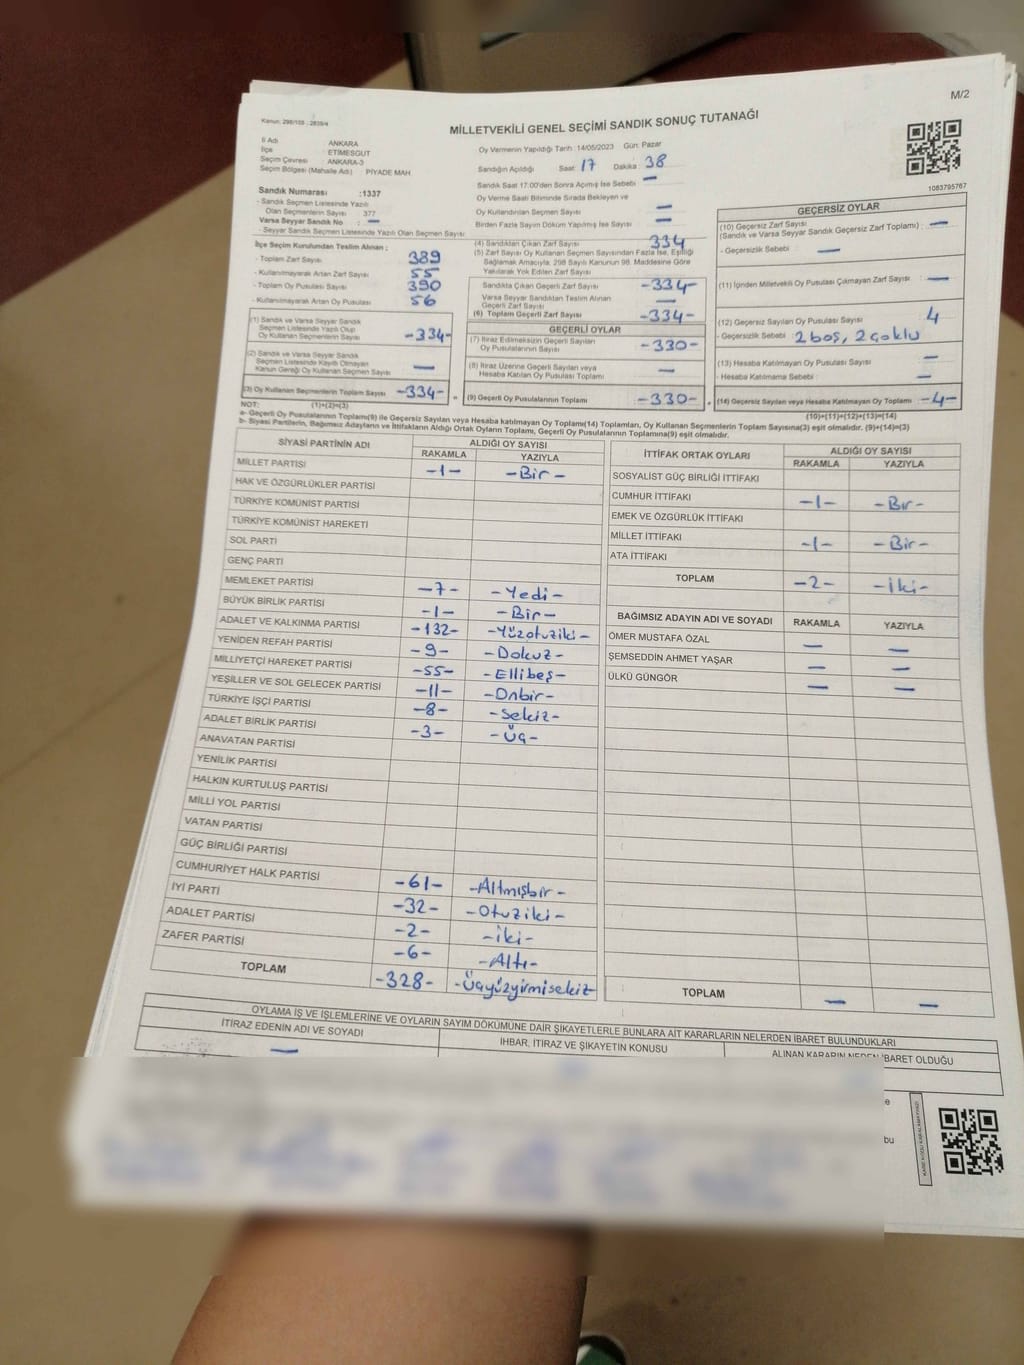 M/2
Kanun: 298/105 ; 2839/4
MİLLETVEKİLİ GENEL SEÇİMİ SANDIK SONUÇ TUTANAĞI
İl Adı : ANKARA
İlçe : ETİMESGUT
Seçim Çevresi : ANKARA-3
Seçim Bölgesi (Mahalle Adı) : PİYADE MAH.
Oy Vermenin Yapıldığı Tarih : 14/05/2023 Gün: Pazar
Sandığın Açıldığı Saat: 17 Dakika : 38
Sandık Saat 17:00'den Sonra Açılmış İse Sebebi : —
Oy Verme Saati Bitiminde Sırada Bekleyen ve
Oy Kullandırılan Seçmen Sayısı —
Birden Fazla Sayım Döküm Yapılmış İse Sayısı —
1083795767
Sandık Numarası :1337
- Sandık Seçmen Listesinde Yazılı
Olan Seçmenlerin Sayısı 377
Varsa Seyyar Sandık No : —
- Seyyar Sandık Seçmen Listesinde Yazılı Olan Seçmen Sayısı
İlçe Seçim Kurulundan Teslim Alınan ;
- Toplam Zarf Sayısı 389
- Kullanılmayarak Artan Zarf Sayısı 55
- Toplam Oy Pusulası Sayısı 390
- Kullanılmayarak Artan Oy Pusulası 56
(1) Sandık ve Varsa Seyyar Sandık
Seçmen Listesinde Yazılı Olup
Oy Kullanan Seçmen Sayısı -334-
(2) Sandık ve Varsa Seyyar Sandık
Seçmen Listesinde Kayıtlı Olmayan
Kanun Gereği Oy Kullanan Seçmen Sayısı —
(3) Oy Kullanan Seçmenlerin Toplam Sayısı -334-
(4) Sandıktan Çıkan Zarf Sayısı 334
(5) Zarf Sayısı Oy Kullanan Seçmen Sayısından Fazla İse, Eşitliği
Sağlamak Amacıyla, 298 Sayılı Kanunun 98. Maddesine Göre
Yakılarak Yok Edilen Zarf Sayısı
Sandıkta Çıkan Geçerli Zarf Sayısı -334-
Varsa Seyyar Sandıktan Teslim Alınan
Geçerli Zarf Sayısı —
(6) Toplam Geçerli Zarf Sayısı -334-
GEÇERLİ OYLAR
(7) İtiraz Edilmeksizin Geçerli Sayılan
Oy Pusulalarının Sayısı -330-
(8) İtiraz Üzerine Geçerli Sayılan veya
Hesaba Katılan Oy Pusulası Toplamı —
= (9) Geçerli Oy Pusulalarının Toplamı -330- +
GEÇERSİZ OYLAR
(10) Geçersiz Zarf Sayısı :
(Sandık ve Varsa Seyyar Sandık Geçersiz Zarf Toplamı) : —
- Geçersizlik Sebebi : —
(11) İçinden Milletvekili Oy Pusulası Çıkmayan Zarf Sayısı : —
(12) Geçersiz Sayılan Oy Pusulası Sayısı : 4
- Geçersizlik Sebebi : 2 boş, 2 çoklu
(13) Hesaba Katılmayan Oy Pusulası Sayısı : —
- Hesaba Katılmama Sebebi : —
(14) Geçersiz Sayılan veya Hesaba Katılmayan Oy Toplamı -4-
NOT: (1)+(2)=(3)
(10)+(11)+(12)+(13)=(14)
a- Geçerli Oy Pusulalarının Toplamı(9) ile Geçersiz Sayılan veya Hesaba katılmayan Oy Toplamı(14) Toplamları, Oy Kullanan Seçmenlerin Toplam Sayısına(3) eşit olmalıdır. (9)+(14)=(3)
b- Siyasi Partilerin, Bağımsız Adayların ve İttifakların Aldığı Ortak Oyların Toplamı, Geçerli Oy Pusulalarının Toplamına(9) eşit olmalıdır.
SİYASİ PARTİNİN ADI ALDIĞI OY SAYISI
RAKAMLA YAZIYLA
MİLLET PARTİSİ -1- -Bir-
HAK VE ÖZGÜRLÜKLER PARTİSİ
TÜRKİYE KOMÜNİST PARTİSİ
TÜRKİYE KOMÜNİST HAREKETİ
SOL PARTİ
GENÇ PARTİ
MEMLEKET PARTİSİ -7- -Yedi-
BÜYÜK BİRLİK PARTİSİ -1- -Bir-
ADALET VE KALKINMA PARTİSİ -132- -Yüzotuziki-
YENİDEN REFAH PARTİSİ -9- -Dokuz-
MİLLİYETÇİ HAREKET PARTİSİ -55- -Ellibeş-
YEŞİLLER VE SOL GELECEK PARTİSİ -11- -Onbir-
TÜRKİYE İŞÇİ PARTİSİ -8- -Sekiz-
ADALET BİRLİK PARTİSİ -3- -Üç-
ANAVATAN PARTİSİ
YENİLİK PARTİSİ
HALKIN KURTULUŞ PARTİSİ
MİLLİ YOL PARTİSİ
VATAN PARTİSİ
GÜÇ BİRLİĞİ PARTİSİ
CUMHURİYET HALK PARTİSİ -61- -Altmışbir-
İYİ PARTİ -32- -Otuziki-
ADALET PARTİSİ -2- -iki-
ZAFER PARTİSİ -6- -Altı-
TOPLAM -328- -Üçyüzyirmisekiz-
İTTİFAK ORTAK OYLARI ALDIĞI OY SAYISI
RAKAMLA YAZIYLA
SOSYALİST GÜÇ BİRLİĞİ İTTİFAKI
CUMHUR İTTİFAKI -1- -Bir-
EMEK VE ÖZGÜRLÜK İTTİFAKI
MİLLET İTTİFAKI -1- -Bir-
ATA İTTİFAKI
TOPLAM -2- -İki-
BAĞIMSIZ ADAYIN ADI VE SOYADI RAKAMLA YAZIYLA
ÖMER MUSTAFA ÖZAL — —
ŞEMSEDDİN AHMET YAŞAR — —
ÜLKÜ GÜNGÖR — —
TOPLAM — —
OYLAMA İŞ VE İŞLEMLERİNE VE OYLARIN SAYIM DÖKÜMÜNE DAİR ŞİKAYETLERLE BUNLARA AİT KARARLARIN NELERDEN İBARET BULUNDUKLARI
İTİRAZ EDENİN ADI VE SOYADI İHBAR, İTİRAZ VE ŞİKAYETİN KONUSU ALINAN KARARIN NEDEN İBARET OLDUĞU
—
bu